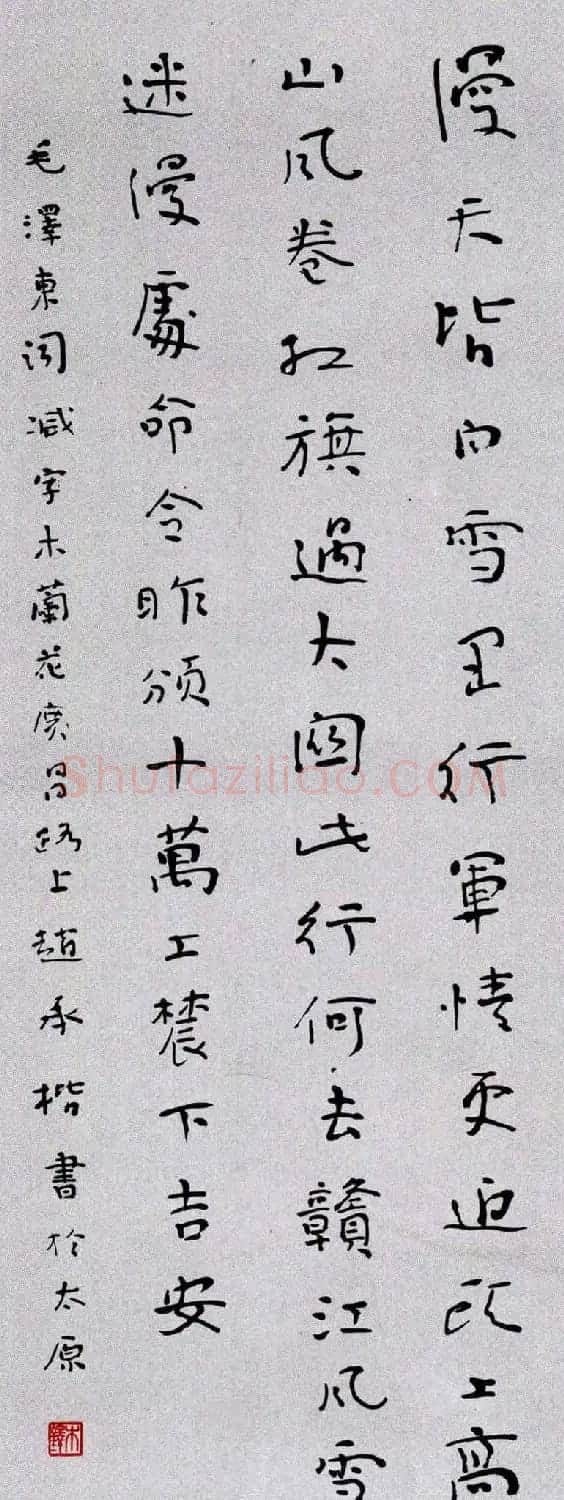 漫天皆白雪里行軍情更迫头上高
山风卷红旗過大関此行何去贛江风雪
迷漫處命令昨頒十萬工農下吉安
毛澤東词减字木蘭花廣昌路上趙承楷書於太原
Shufaziliao.COM